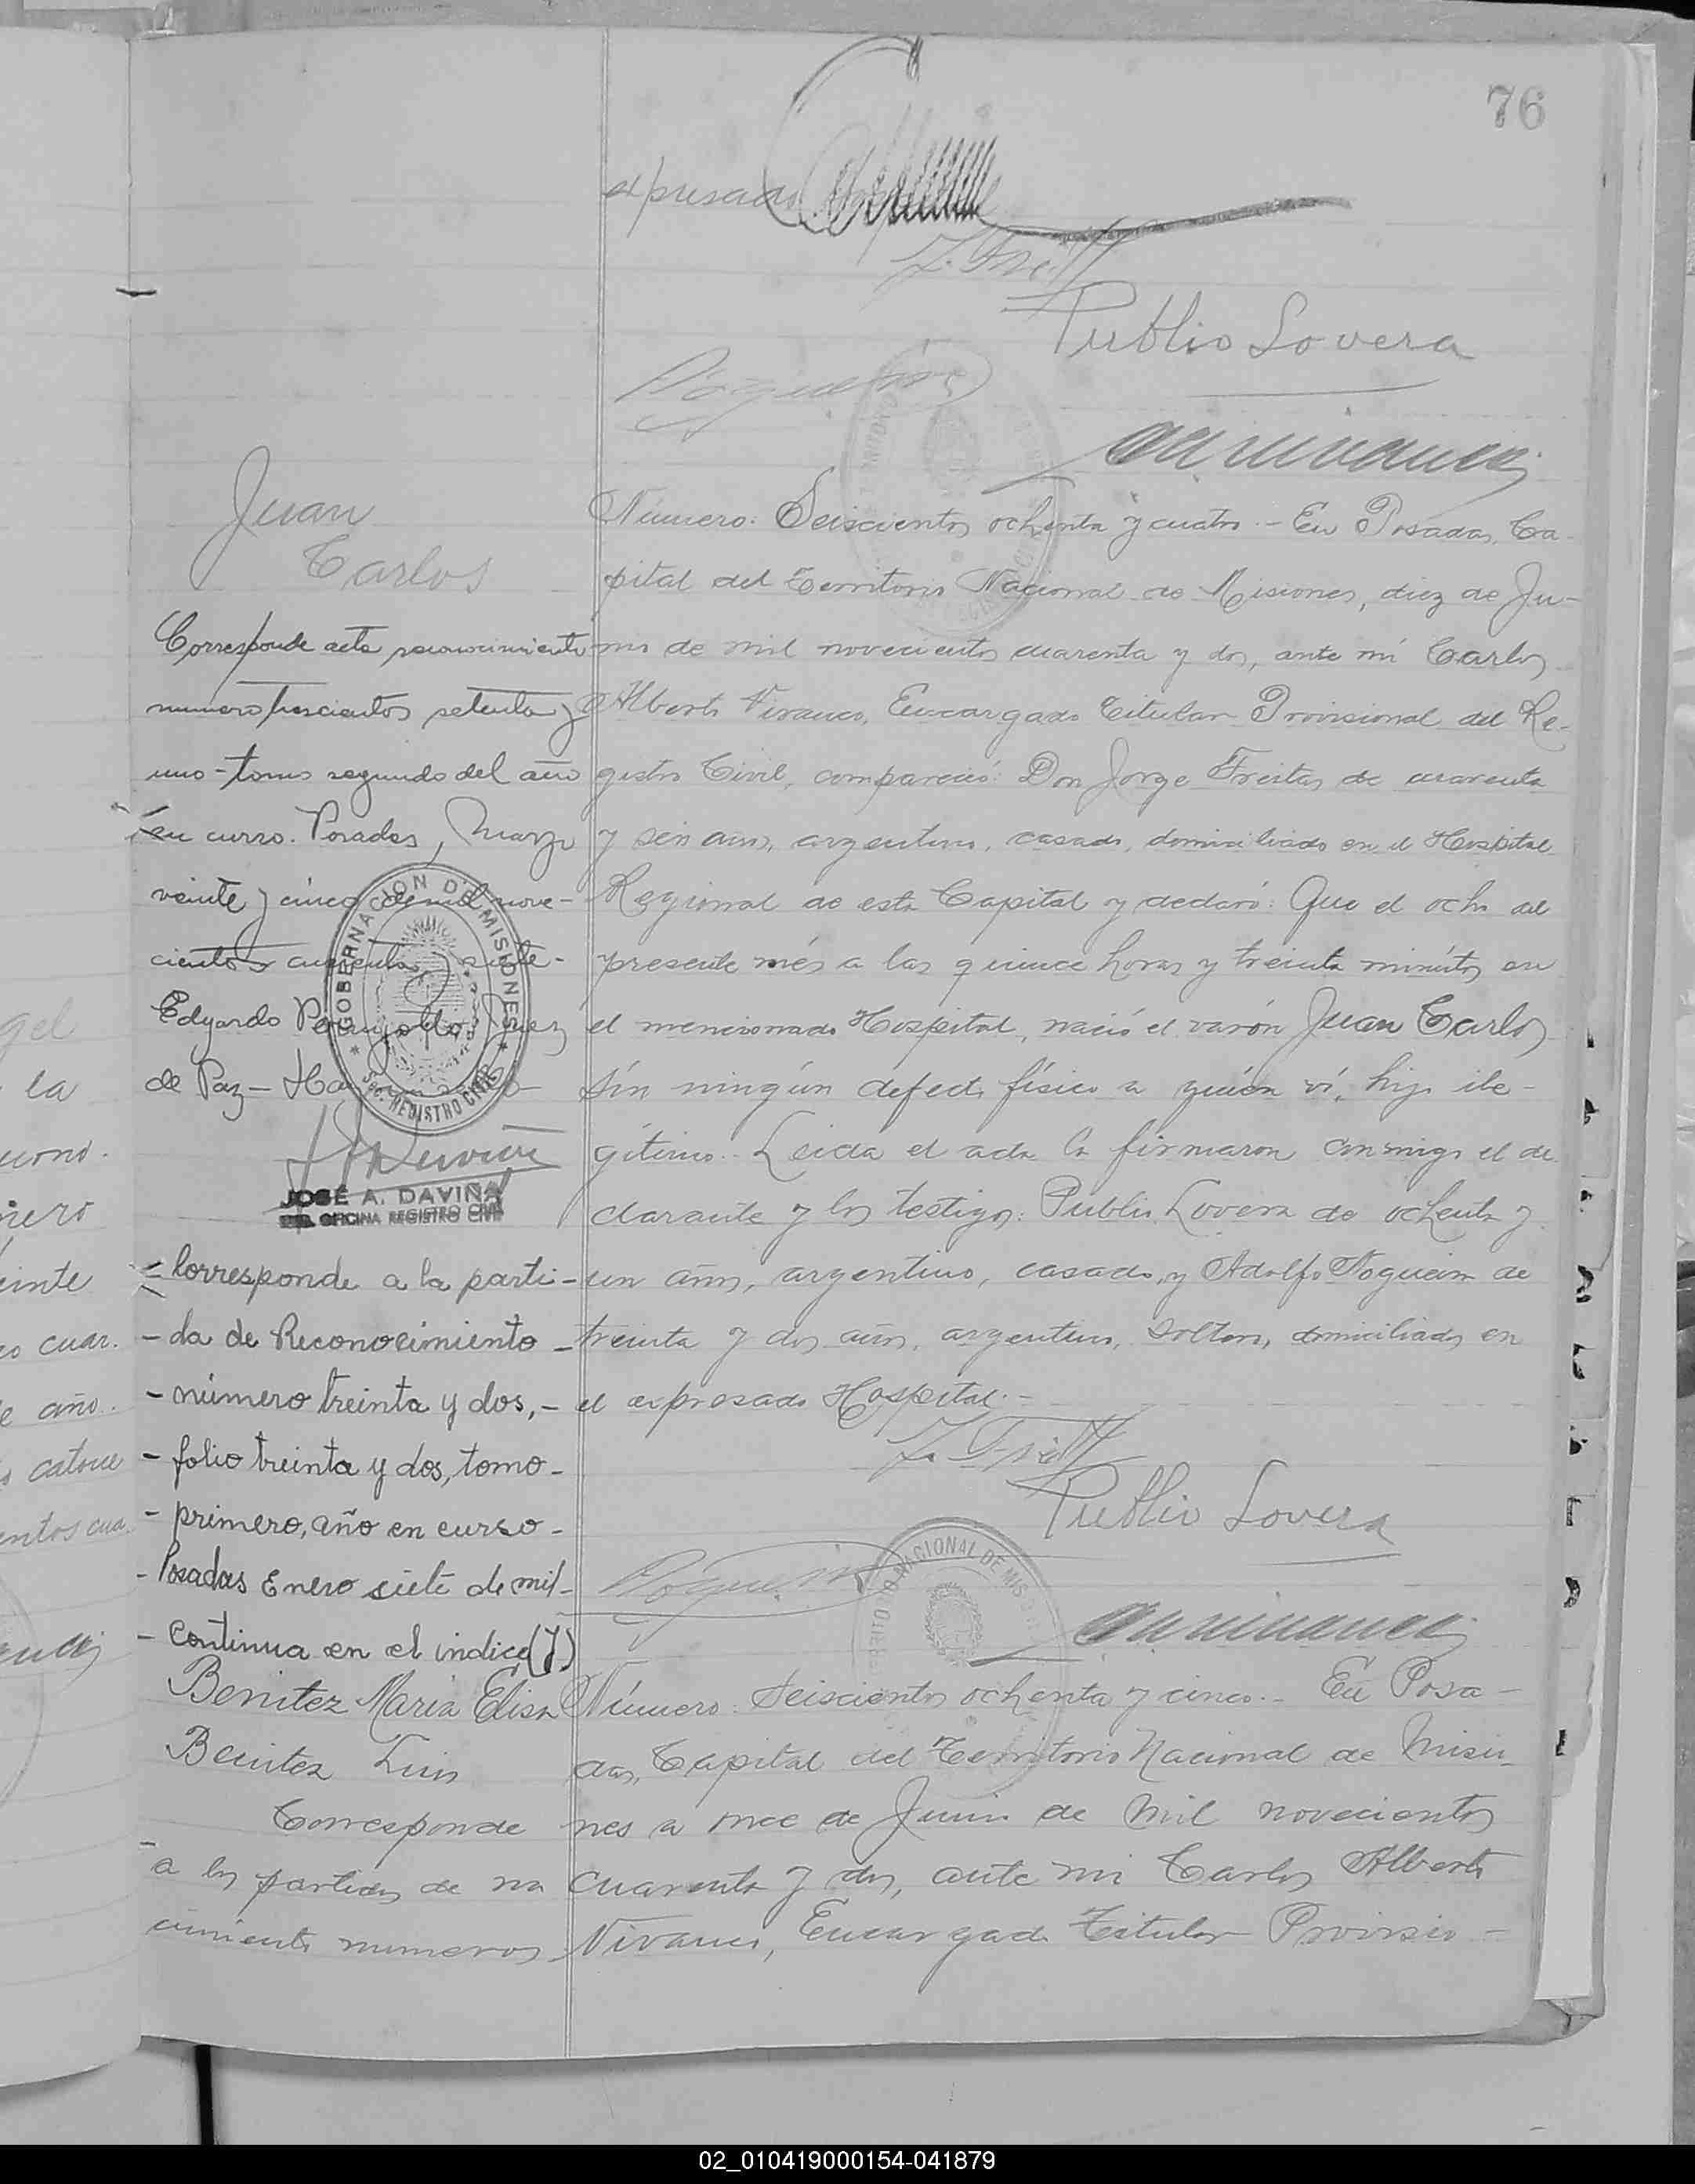 76
expresado
Publio Lovera
Juan
Carlos
Corresponde acta reconocimiento
numero trescientos setenta y
uno-tomo segundo del año
en curso. Posadas, Marzo
veinte y cinco de mil nove-
cientos cuarenta y siete-
Edgardo Juez
de Paz-
GOBERNACION DE MISIONES
Sec. REGISTRO CIVIL
JOSÉ A. DAVIÑA
OFICINA REGISTRO CIVIL
= Corresponde a la parti-
- da de Reconocimiento -
- número treinta y dos, -
- folio treinta y dos, tomo -
- primero, año en curso -
- Posadas Enero siete de mil -
- continua en el indice (J)
Número: Seiscientos ochenta y cuatro.- En Posadas, Ca-
pital del Territorio Nacional de Misiones, diez de Ju-
nio de mil novecientos cuarenta y dos, ante mí Carlos
Alberto Vivanco, Encargado Titular Provisional del Re-
gistro Civil, compareció: Don Jorge Freitas de cuarenta
y seis años, argentino, casado, domiciliado en el Hospital
Regional de esta Capital y declaró: Que el ocho del
presente més a las quince horas y treinta minutos en
el mencionado Hospital, nació el varón Juan Carlos
sin ningún defecto físico a quién ví, hijo ile-
gítimo.- Leida el acta la firmaron conmigo el de
clarante y los testigos: Publio Lovera de ochenta y
un años, argentino, casado, y Adolfo Nogueira de
treinta y dos años, argentino, soltero, domiciliados en
el expresado Hospital.-
Publio Lovera
TERRITORIO NACIONAL DE MISIONES
Benitez Maria Elisa
Benitez Luis
Corresponde
a las partidas de na
cimiento numeros
Número: Seiscientos ochenta y cinco.- En Posa-
das, Capital del Territorio Nacional de Misio-
nes a once de Junio de mil novecientos
cuarenta y dos, ante mi Carlos Alberto
Vivanco, Encargado Titular Provisio-
02_010419000154-041879